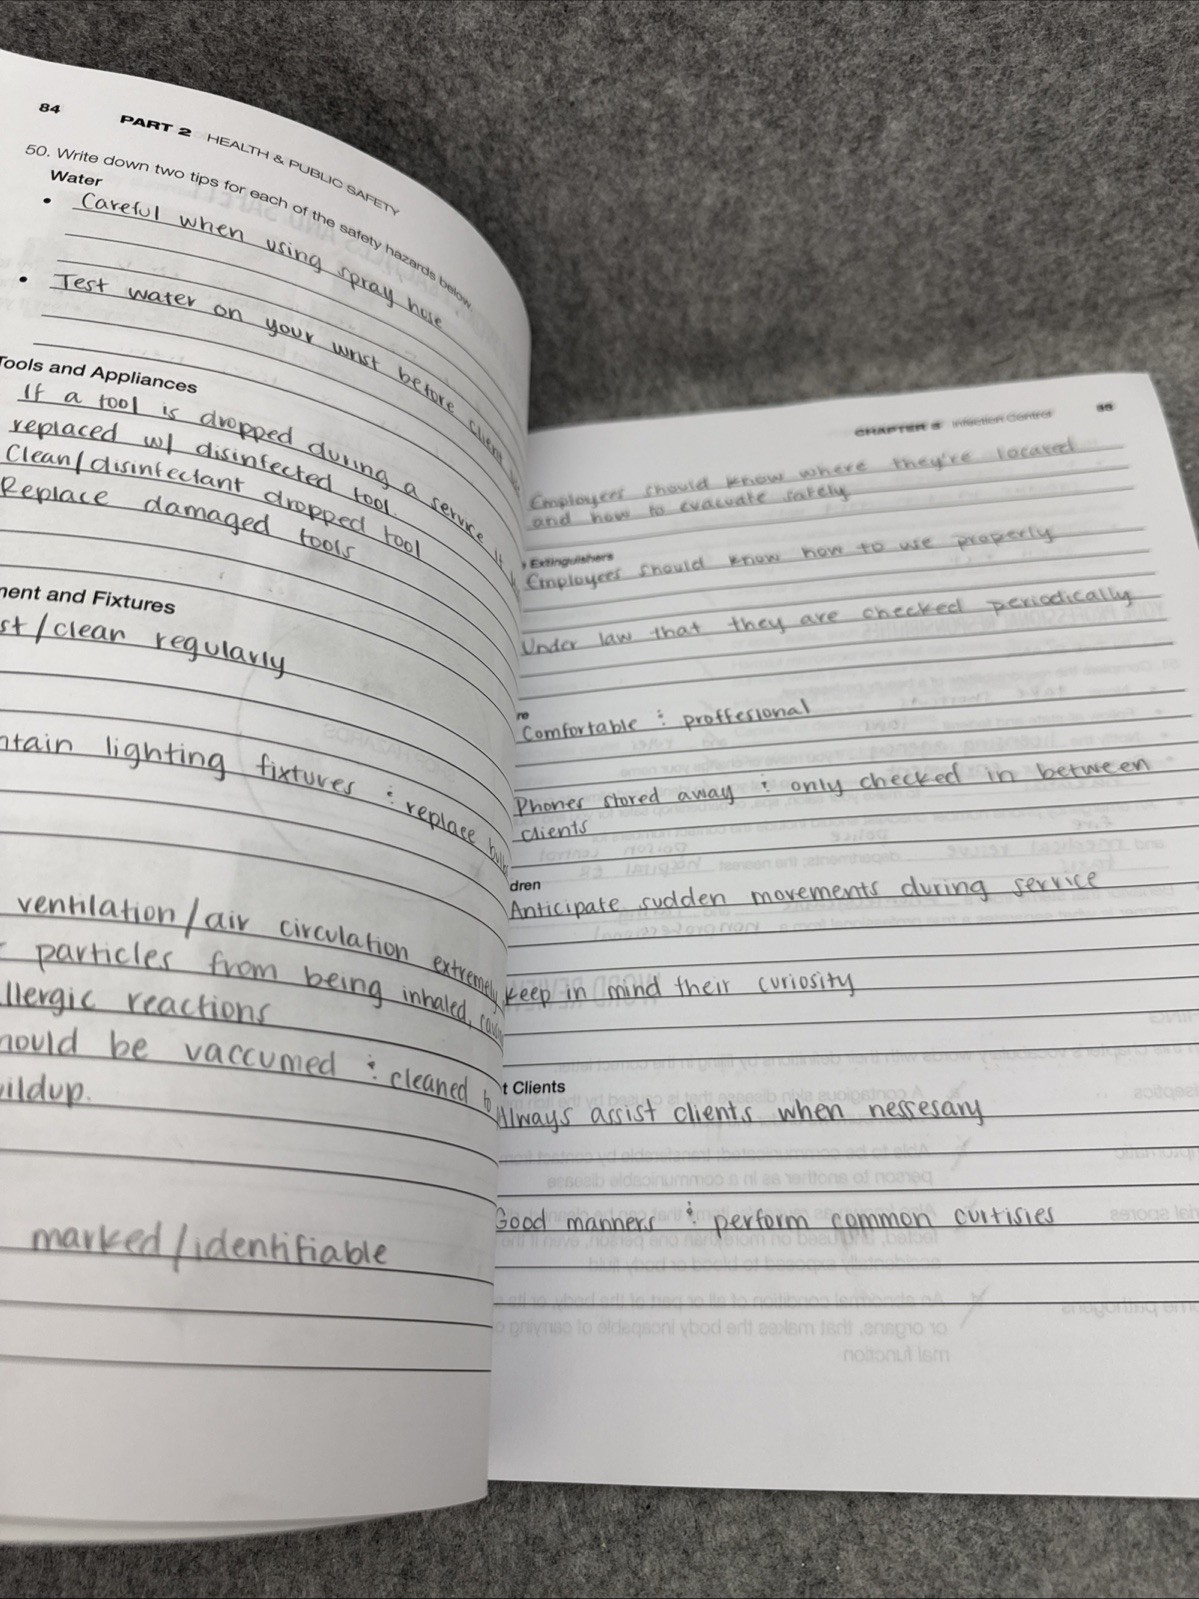 84 PART 2 HEALTH & PUBLIC SAFETY
50. Write down two tips for each of the safety hazards below
Water
• Careful when using spray hose
• Test water on your wrist before client
Tools and Appliances
If a tool is dropped during a service it
replaced w/ disinfected tool.
Clean/disinfectant dropped tool
Replace damaged tools
ment and Fixtures
st/clean regularly
ntain lighting fixtures & replace bulbs
ventilation/air circulation extremely
particles from being inhaled,
llergic reactions
hould be vaccumed & cleaned to
uildup.
marked/identifiable
CHAPTER 5 Infection Control 85
Employees should know where they're located
and how to evacuate safely
Extinguishers
Employees should know how to use properly
Under law that they are checked periodically
re
Comfortable & proffesional
Phones stored away & only checked in between
clients
dren
Anticipate sudden movements during service
keep in mind their curiosity
t Clients
Always assist clients when nessesary
Good manners & perform common curtisies